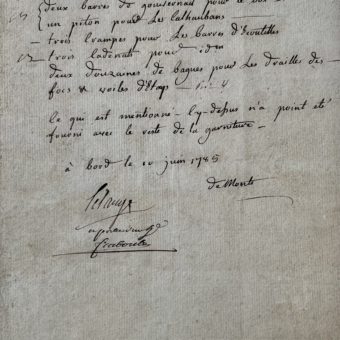 deux barres de gouvernail pour le
un piton pour Les Cathaubans
trois Crampes pour Les barres d'Ecoutilles
trois cadenats pour idem
deux douzaines de bagues pour Les drailles des
focs & voiles d'Etay
Ce qui est mentionné Cy-dessus n'a point eté
fourni avec le reste de la garniture
à bord le 10 juin 1785
de Monti